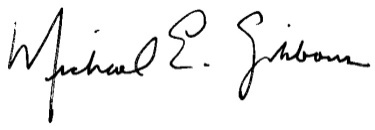 Michael E. Gibbons